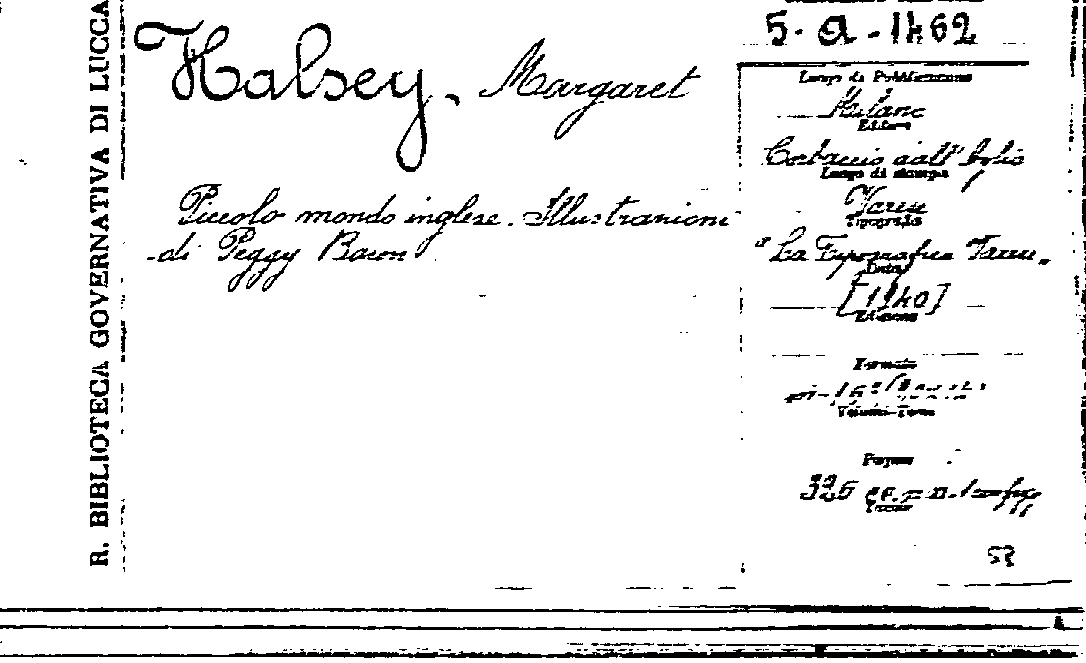 R. BIBLIOTECA GOVERNATIVA DI LUCCA
Halsey, Margaret
Piccolo mondo inglese. Illustrazioni
di Peggy Bacon
5-a-1462
Luogo di Pubblicazione
Milano
Editore
Corbaccio dall'Oglio
Luogo di stampa
Varese
Tipografia
"La Tipografica Varese"
Data
[1940]
Edizione
Formato
in-16°
Volumi-Tomi
Pagine
326
Tavole
53